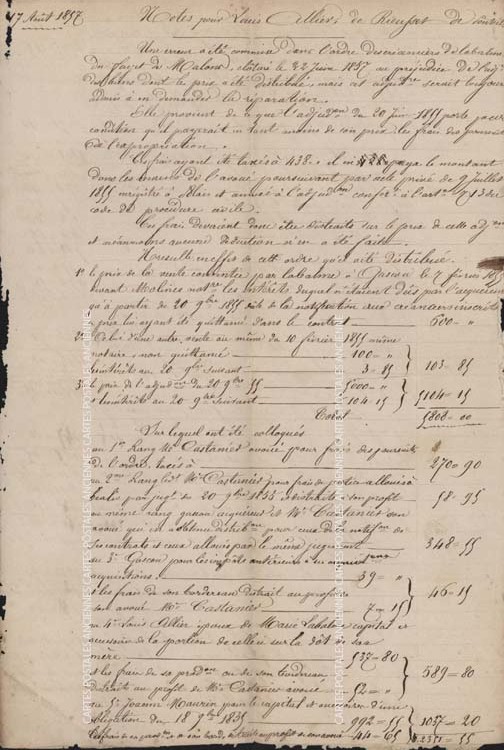 17 Août 1857 Notes pour Louis Cellier, de Rieufort de
Une erreur a été commise dans l'ordre des créanciers de Labalme
du Fayet de Malons, cloturé le 22 Juin 1857 au préjudice de l'adj
des biens dont le prix a été distribué, mais cet adjud re serait toujours
admis à en demander la réparation.
Elle provient de ce que l'adjud on du 20 Juin 1855 porte pour
condition qu'il payerait en tant moins de son prix les frais des
de l'expropriation.
Ces frais ayant été taxés à 438 = il en paya le montant
dans les mains de l'avoué poursuivant par acte privé du 9 Juillet
1855 enregistré à et annexé à l'adjud on confor t à l'art e 713 du
code de procédure civile.
Ces frais devaient donc être distraits sur le prix de cette adj on
et néanmoins aucune déduction n'en a été faite.
Il résulte en effet de cet ordre qu'il a été distribué.
1° le prix de la vente consentie par Labalme à le 7 février 1855
devant Molines not re les intérêts duquel n'étaient dûs par l'acquéreur
qu'à partir du 20 9bre 1855 date de la notification aux créanciers inscrits
le prix lui ayant été quittancé dans le contrat 600 = "
2° Celui d'une autre vente au même du 10 février 1855 même
notaire, non quittancé 100 = "
intérêts au 20 9bre suivant 3 = 85 103 = 85
3° le prix de l'adjud on du 20 9bre 55 5000 = "
intérêts au 20 9bre suivant 104 = 15 5104 = 15
Total 5808 = 00
Sur lequel ont été colloqués
au 1er Rang Me Castanier avoué pour frais de poursuite
de l'ordre, taxés à 270 = 90
au 2me Rang led t Me Castanier pour frais de alloués à
par jug t du 20 9bre 1855 et distraits à son profit 58 = 95
au même rang acquéreur et Me Castanier son
avoué qui en a obtenu distrib on pour ceux de la notif on de
ses contrats et ceux alloués par le même jugement 348 = 55
au 3e Gascon pour les impôts antérieurs à
acquisitions 39 = "
et les frais de son bordereau distrait au profit de
son avoué Me Castanier 7 = 15 46 = 15
au 4e Louis Allier époux de Marie Labalme capital et
accessoires de la portion de celle-ci sur la dot de sa
mère 537 = 80
et les frais de sa prod on ou de son bordereau
distrait au profit de Me Castanier avoué 52 = " 589 = 80
au 5e Jeanne Maurin pour le capital et accessoires d'une
obligation du 18 9bre 1835 992 = 55 1037 = 20
44 = 65